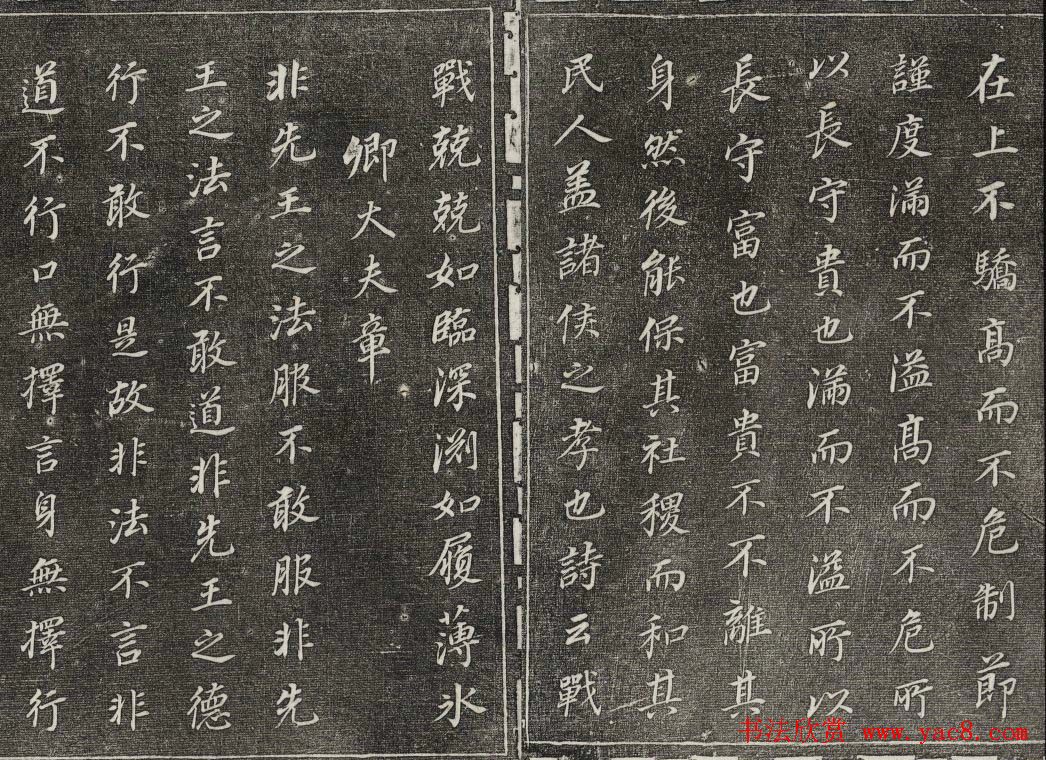 在上不驕髙而不危制節
謹度滿而不溢髙而不危所
以長守貴也滿而不溢所以
長守富也富貴不不離其
身然後能保其社稷而和其
民人盖諸侯之孝也詩云戰
戰兢兢如臨深渕如履薄氷
卿大夫章
非先王之法服不敢服非先
王之法言不敢道非先王之德
行不敢行是故非法不言非
道不行口無擇言身無擇行
书法欣赏 www.yac8.com